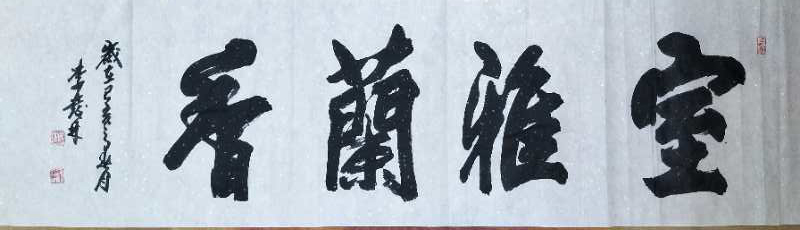 室雅蘭香
歲在己亥之春月
李